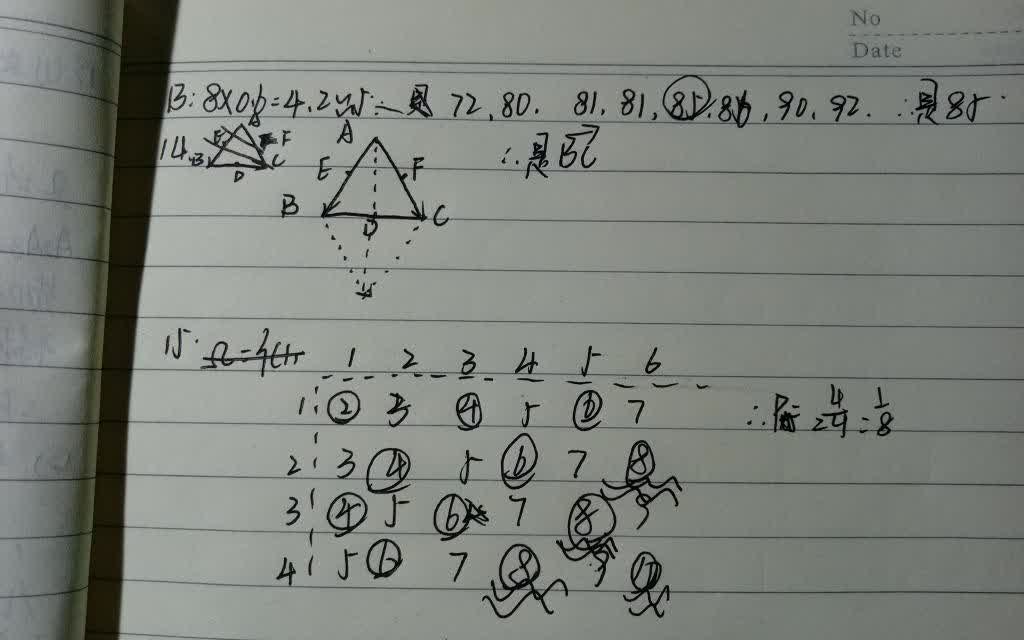 No
Date
13: 8×0.6=4.2 ∴是 72, 80. 81, 81, 85, 86, 90, 92. ∴是85.
14. A E F B D C
A E F B D C ∴是BC
15.
1 2 3 4 5 6
1 2 3 4 5 6 7
2 3 4 5 6 7 8
3 4 5 6 7 8 9
4 5 6 7 8 9 10
∴P=4/24=1/8